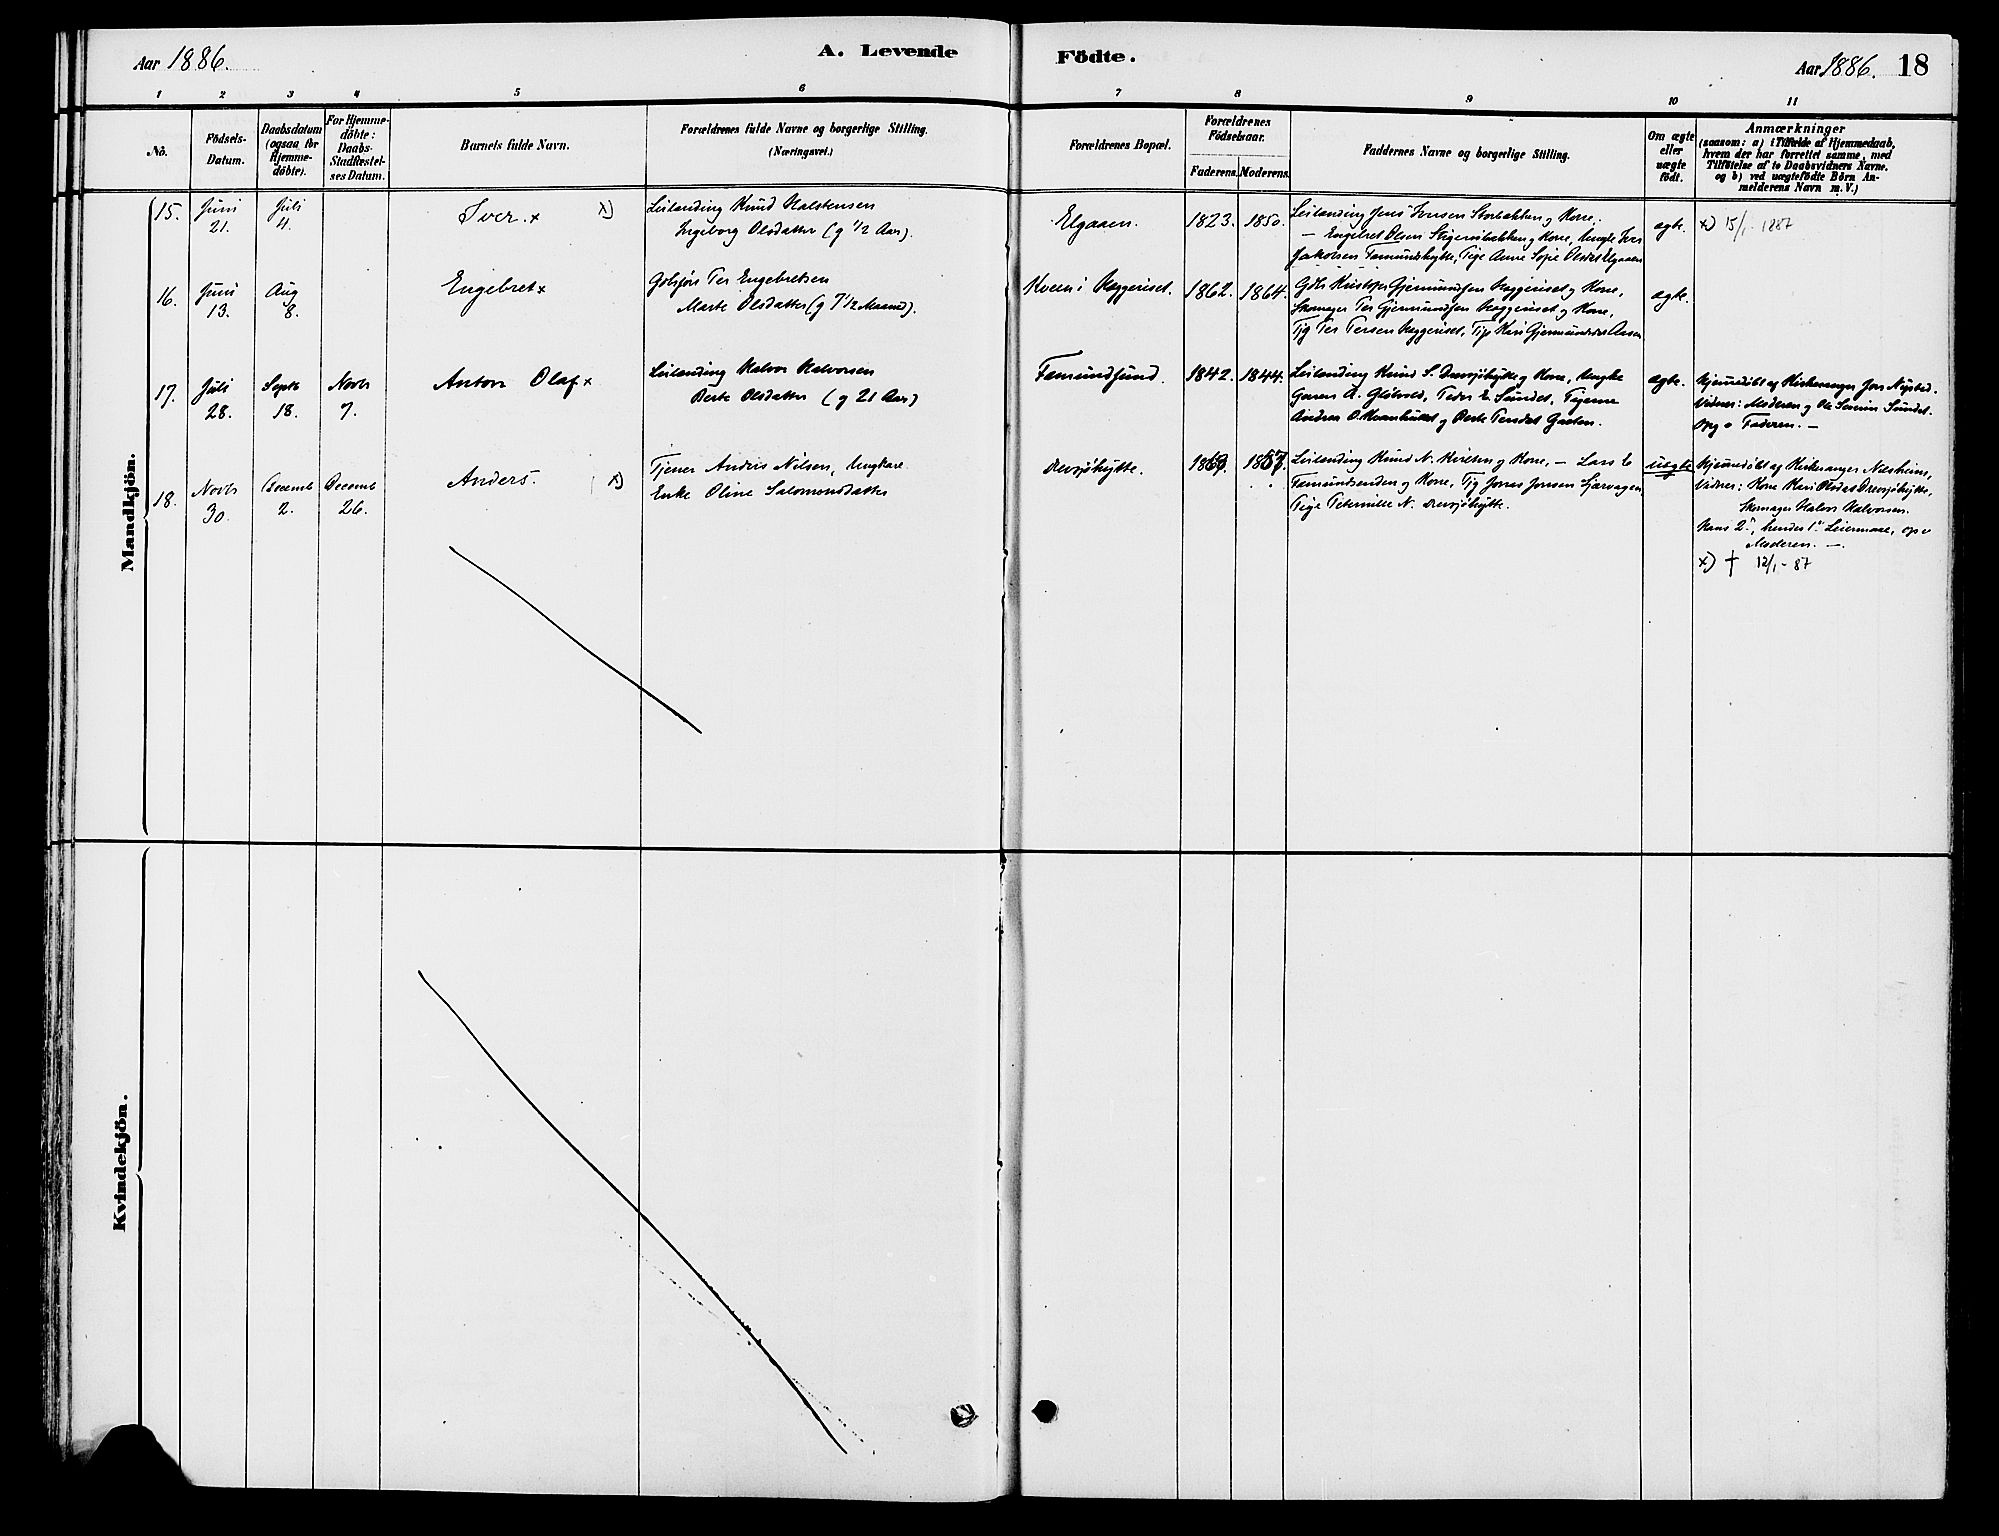 Aar 1886.
A. Levende
Födte.
Aar 1886. 18
1 2 3 4 5 6 7 8 9 10 11
No.
Födsels-
Datum.
Daabsdatum
(ogsaa for
Hjemme-
döbte).
For Hjemme-
döbte:
Daabs-
Stadfæstel-
ses Datum.
Barnets fulde Navn.
Forældrenes fulde Navne og borgerlige Stilling.
(Næringsvei.)
Forældrenes Bopæl.
Forældrenes
Födselsaar.
Faderens. Moderens.
Faddernes Navne og borgerlige Stilling.
Om ægte
eller
uægte
födt.
Anmærkninger
(saasom: a) i Tilfælde af Hjemmedaab,
hvem der har forrettet samme, med
Tilföielse af to Daabsvidners Navne.
og b) ved uægtefödte Börn An-
melderens Navn m. V.)
Mandkjön.
15. Juni 21. Juli 4. Iver. x x)
Leilending Knud Halstensen
Ingeborg Olsdatter (g 1/2 Aar).
Elgaaen. 1823. 1850.
Leilending Jens Iversen Storbakken og Kone.
— Engebret Olsen og Kone, Ungk Iver
Jakobsen Fæmundshytte, Pige Anne Sofie Olsdat Elgaaen
ægte. x) 15/1 - 1887
16. Juni 13. Aug 8. Engebret x
Per Engebretsen
Marte Olsdatter (g 7 1/2 Maaned).
Kveen i Haggeriset. 1862. 1864.
Gdb Kristofer Gjermundsen Haggeriset og Kone,
Skomager Per Gjermundsen Haggeriset og Kone,
Tjg Per Persen Haggeriset, Pige Kari Gjermundsdat Aasen
ægte.
17. Juli 28. Septb 18. Novb 7. Anton Olaf x
Leilending Halvor Halvorsen
Berte Olsdatter (g 21 Aar)
Fæmundsund. 1842. 1844.
Leilending Knud S. Drevsjöhytte og Kone, Ungke
Goren A. Glötvold, Peder E Sundet, Pigerne
Andrea O. og Berte Persdat Galten.
ægte.
Hjemmedöbt af Kirkesanger Jon Nysted.
Vidner: Moderen og Ole Severin Sundet.
Opg v Faderen. —
18. Novb 30. Decemb 2. Decemb 26. Anders. x)
Tjener Anders Nilsen, Ungkarl
Enke Oline Salomonsdatter
Drevsjöhytte.
Leilending Knud N. og Kone, — Lars E
Fæmundsenden og Kone, Tjg Jonas Jonsen
Pige Petermille N. Drevsjöhytte.
uægte
Hjemmedöbt af Kirkesanger Nilsheim,
Vidner: Kone Kari Olsdat Drevsjöhytte,
Skomager Halvor Halvorsen.
Hans 2', hendes 1' Leiermaal, op v
Moderen. —.
x) † 12/1 - 87
Kvindekjön.